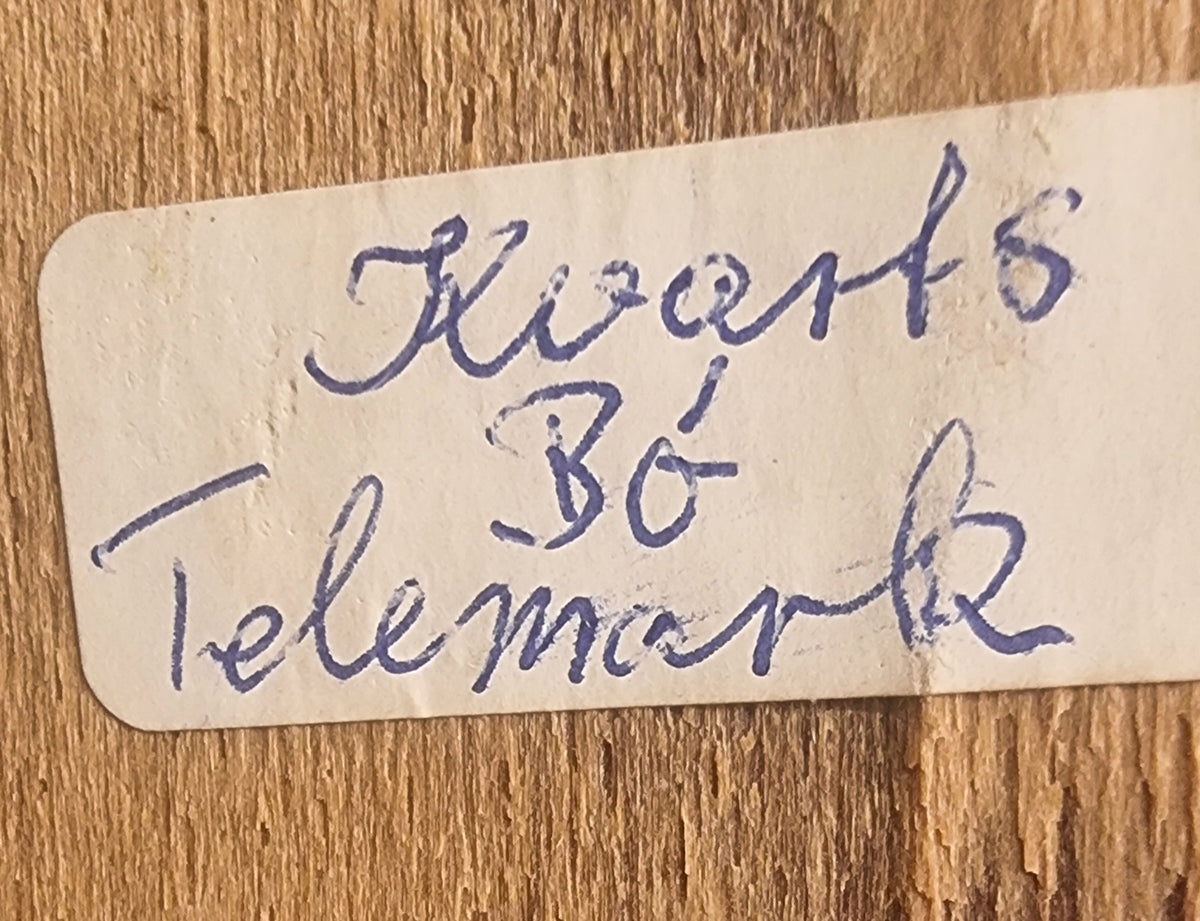 Kvarts
Bó
Telemark